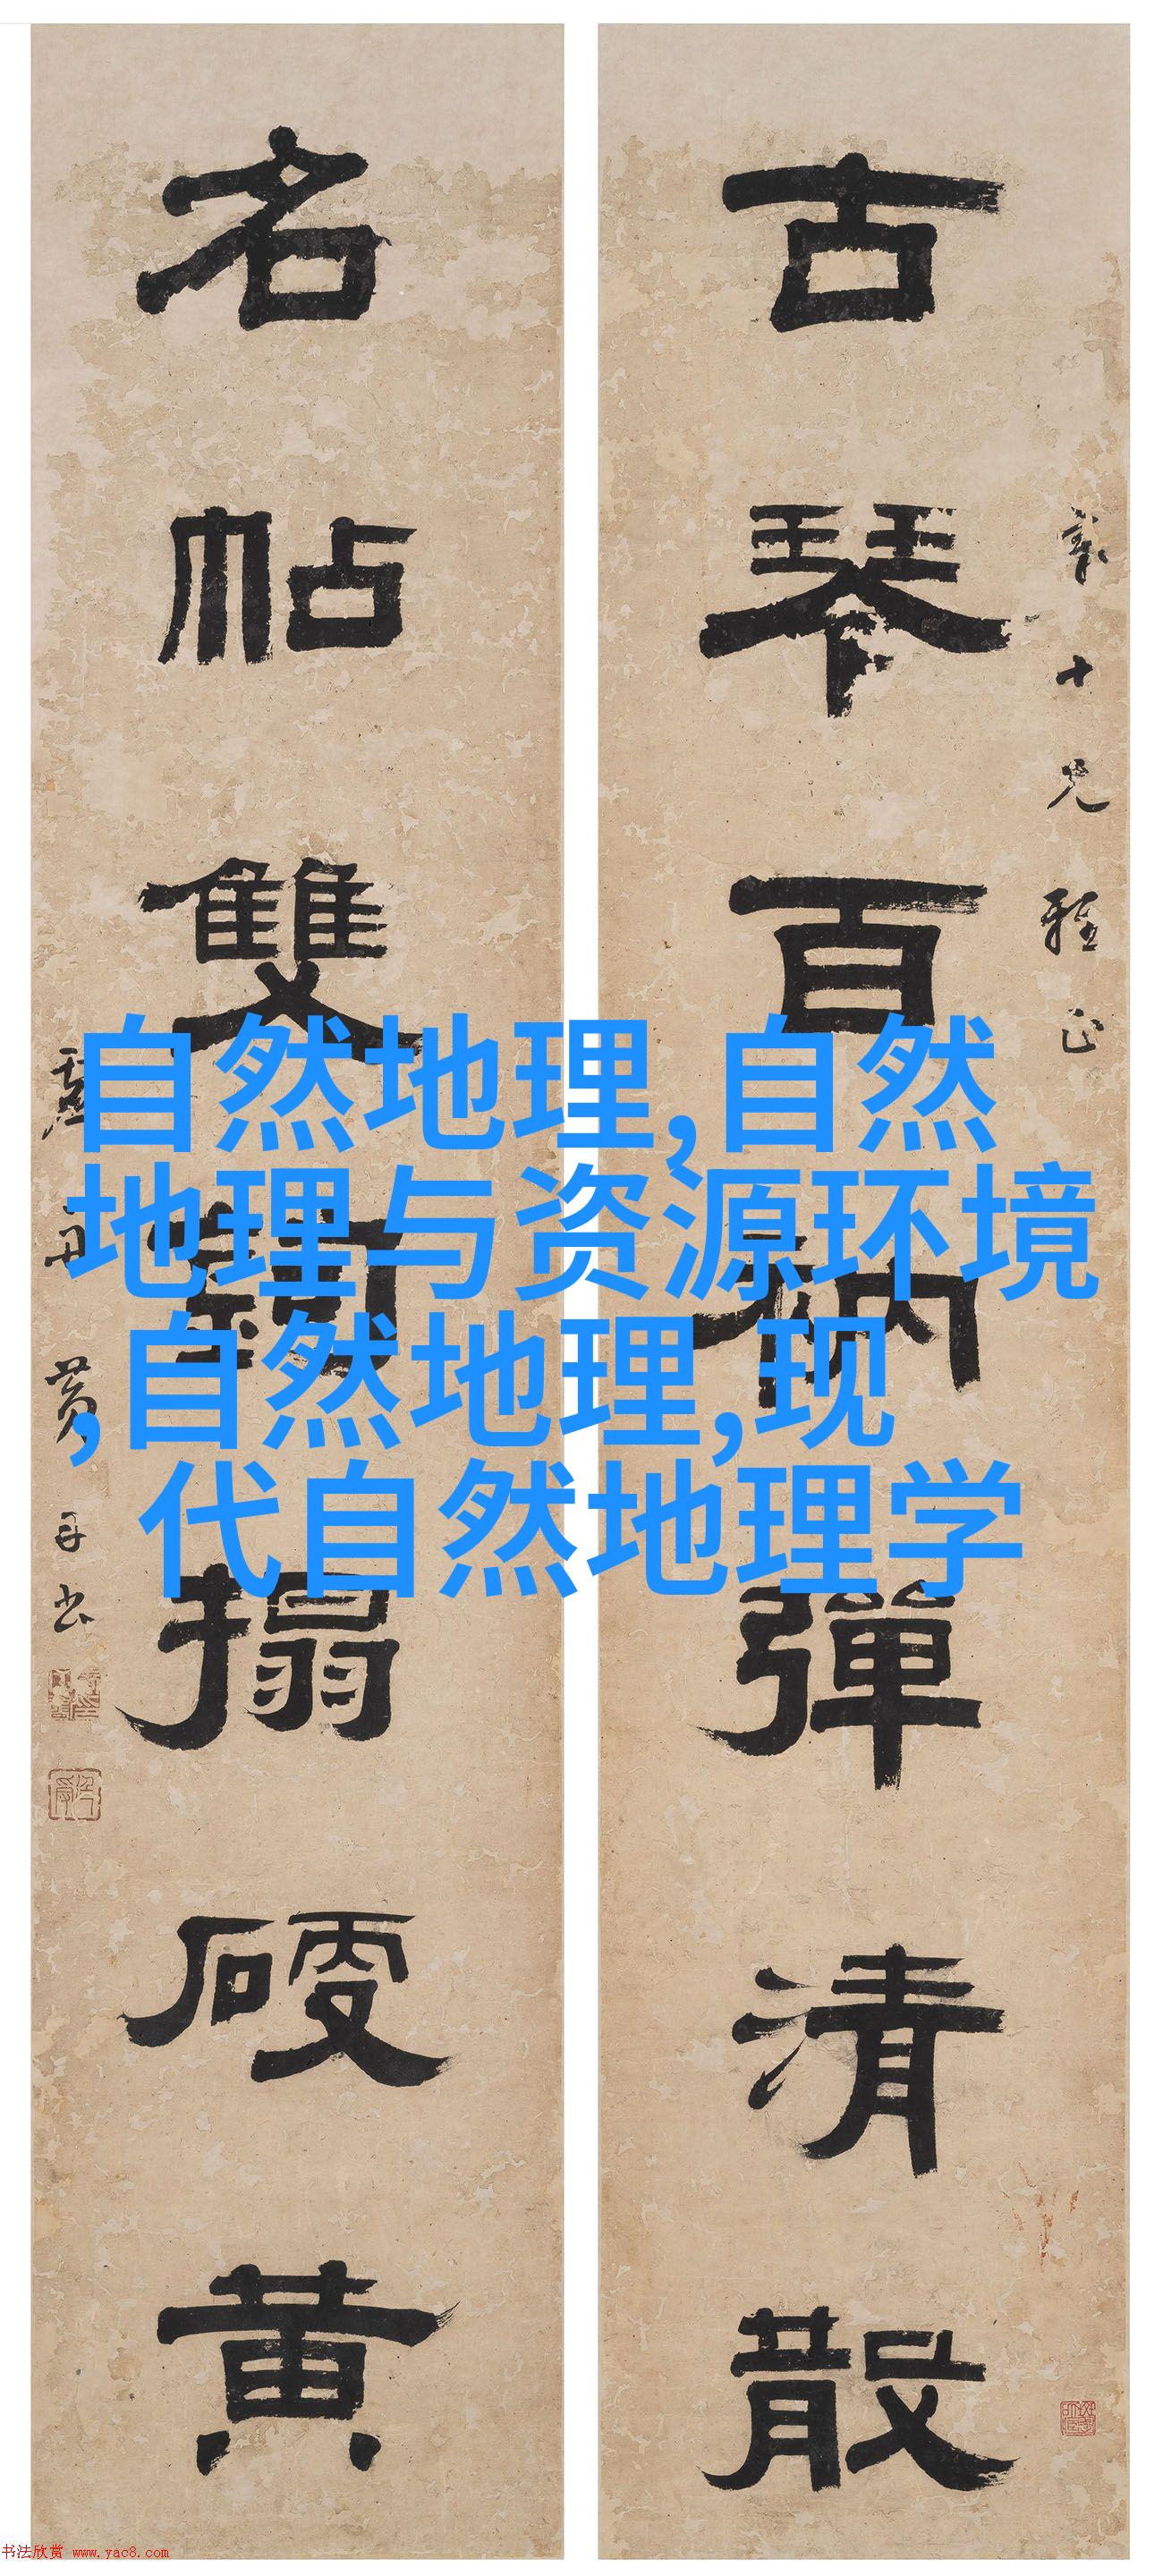 古琴百衲彈清散
名帖雙鉤搨硬黄
十兄雅正
自然地理,自然
地理与资源环境
,自然地理,现
代自然地理学
书法欣赏 www.yac8.com